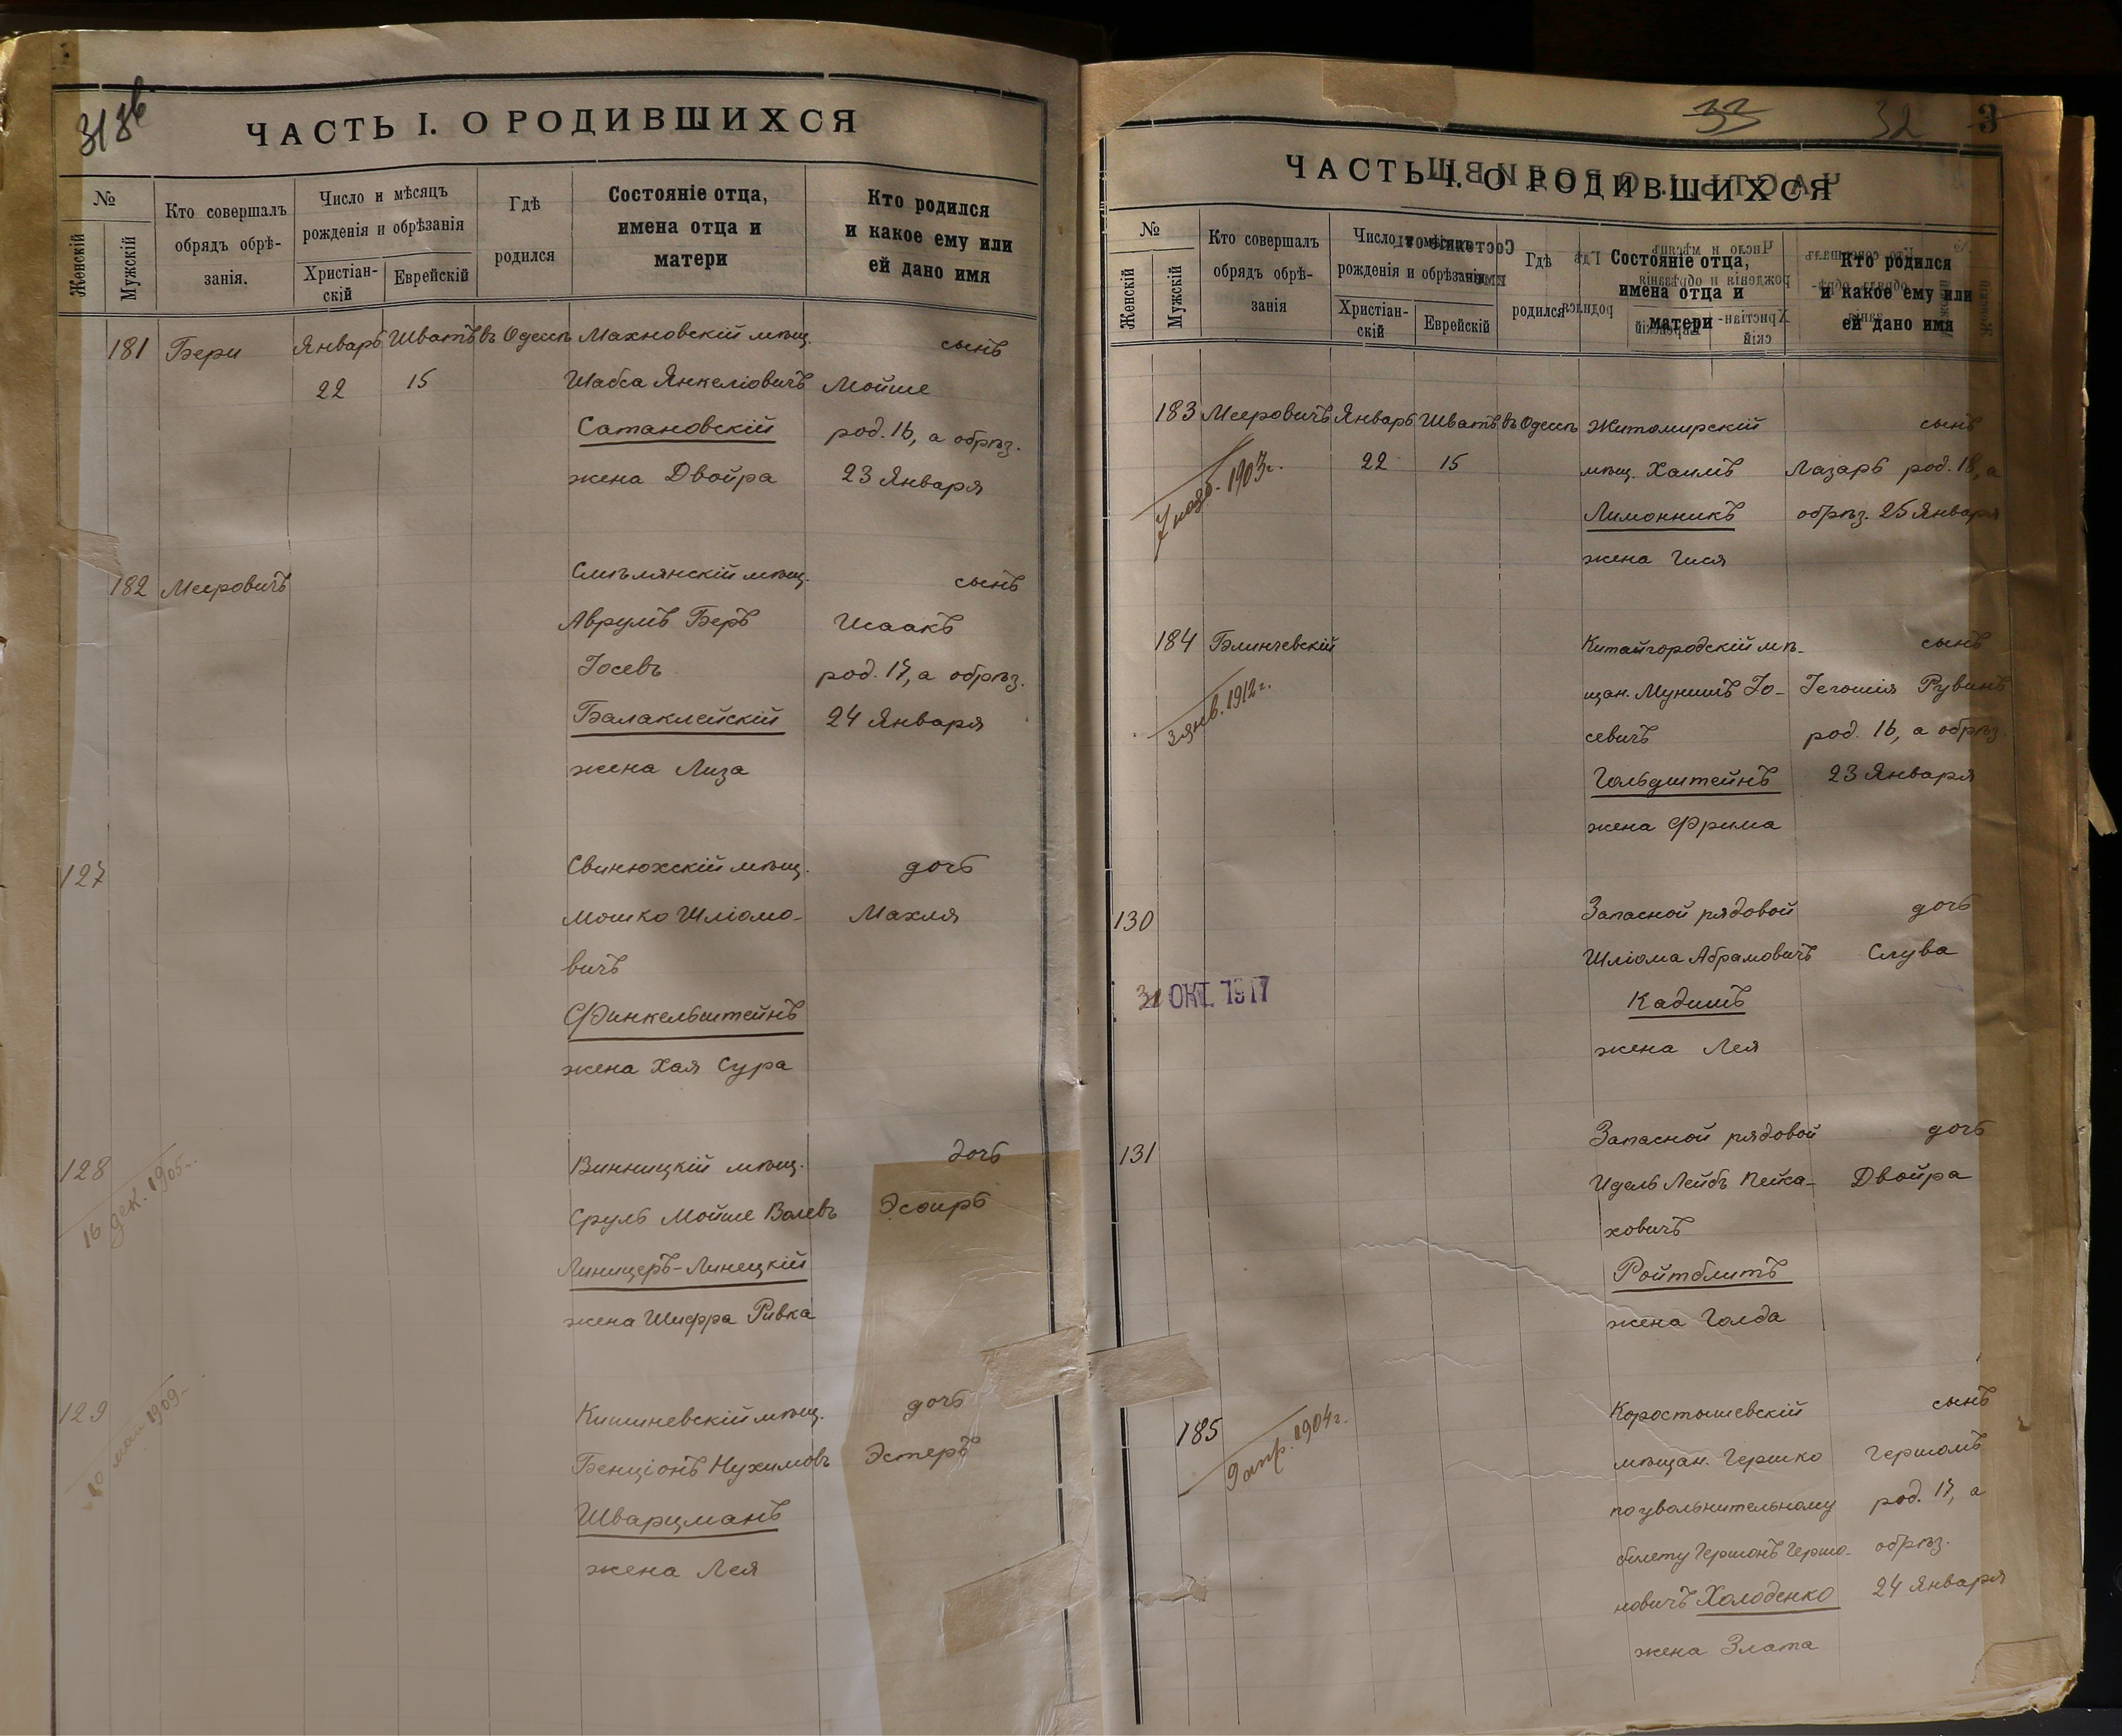 31 зв
ЧАСТЬ I. О РОДИВШИХСЯ
№
Женскій
Мужскій
Кто совершалъ
обрядъ обрѣ-
занія.
Число и мѣсяцъ
рожденія и обрѣзанія
Христіан-
скій
Еврейскій
Гдѣ
родился
Состояніе отца,
имена отца и
матери
Кто родился
и какое ему или
ей дано имя
181 Бери Январь Шватъ въ Одессѣ Махновскій мѣщ. сынъ
22 15 Шабса Янкеліовичъ Мойше
Сатановскій род. 16, а обрѣз.
жена Двойра 23 Января
182 Мееровичъ Смѣлянскій мѣщ. сынъ
Аврумъ Беръ Исаакъ
Іосевъ род. 17, а обрѣз.
Балаклейскій 24 Января
жена Лиза
127 Свинюхскій мѣщ. дочь
Мошко Шліомо- Махля
вичъ
Финкельштейнъ
жена Хая Сура
128 Винницкій мѣщ. дочь
16 дек. 1905 г.
Сруль Мойше Волевъ Эсѳирь
Линицеръ-Линецкій
жена Шифра Ривка
129 Кишиневскій мѣщ. дочь
10 мая 1909 г.
Бенціонъ Нухимовъ Эстеръ
Шварцманъ
жена Лея
33 32 3
ЧАСТЬ I. О РОДИВШИХСЯ
№
Женскій
Мужскій
Кто совершалъ
обрядъ обрѣ-
занія
Число и мѣсяцъ
рожденія и обрѣзанія
Христіан-
скій
Еврейскій
Гдѣ
родился
Состояніе отца,
имена отца и
матери
Кто родился
и какое ему или
ей дано имя
183 Мееровичъ Январь Шватъ въ Одессѣ Житомирскій сынъ
22 15 мѣщ. Хаимъ Лазарь род. 18, а
7 нояб. 1903 г.
Лимонникъ обрѣз. 25 Января
жена Гися
184 Блинчевскій Китайгородскій мѣ- сынъ
3 янв. 1912 г.
щан. Мунишъ Іо- Іегошія Рувинъ
севичъ род. 16, а обрѣз.
Гольдштейнъ 23 Января
жена Фрима
130 Запасной рядовой дочь
Шліома Абрамовичъ Слува
31 ОКТ. 1917
Кадишъ
жена Лея
131 Запасной рядовой дочь
Идель Лейбъ Пейса- Двойра
ховичъ
Ройтблитъ
жена Голда
185 Коростышевскій сынъ
9 апр. 1904 г.
мѣщан. Гершко Гершонъ
по увольнительному род. 17, а
билету Гершонъ Гершо- обрѣз.
новичъ Холоденко 24 Января
жена Злата